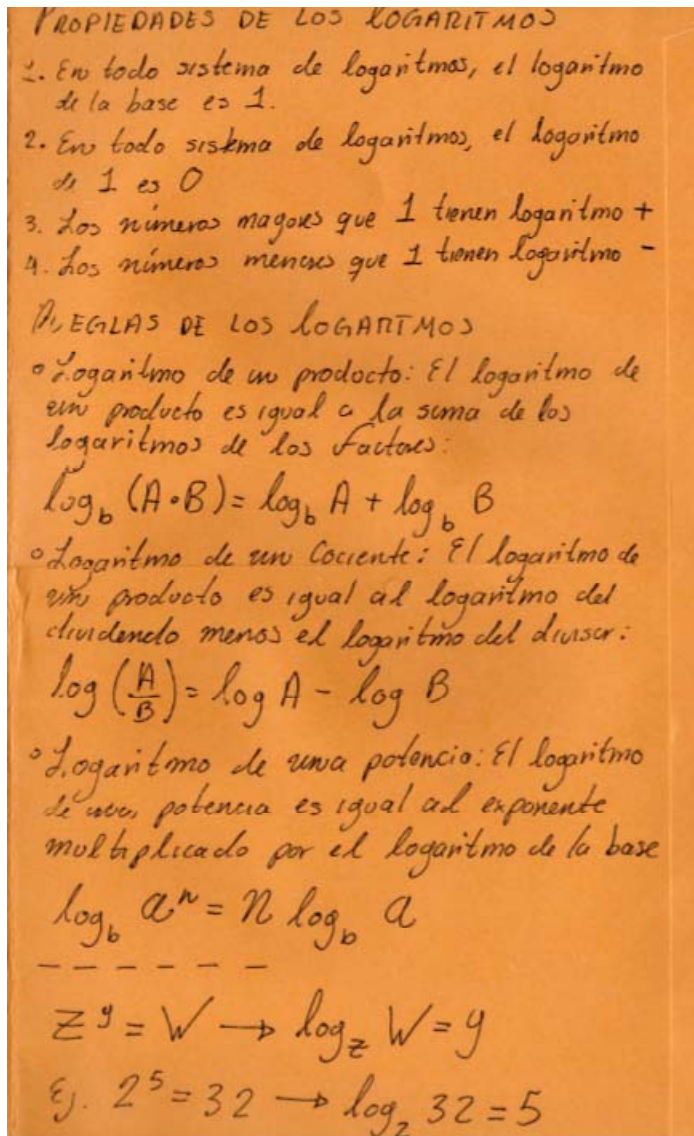 PROPIEDADES DE LOS LOGARITMOS
1. En todo sistema de logaritmos, el logaritmo
de la base es 1.
2. En todo sistema de logaritmos, el logaritmo
de 1 es 0
3. Los números mayores que 1 tienen logaritmo +
4. Los números menores que 1 tienen logaritmo -
REGLAS DE LOS LOGARTMOS
• Logaritmo de un producto: El logaritmo de
un producto es igual a la suma de los
logaritmos de los factores:
log_b (A•B) = log_b A + log_b B
• Logaritmo de un Cociente: El logaritmo de
un producto es igual al logaritmo del
dividendo menos el logaritmo del divisor:
log (A/B) = log A - log B
• Logaritmo de una potencia: El logaritmo
de una potencia es igual al exponente
multiplicado por el logaritmo de la base
log_b aⁿ = n log_b a
------
z^y = W → log_z W = y
Ej. 2⁵ = 32 → log₂ 32 = 5